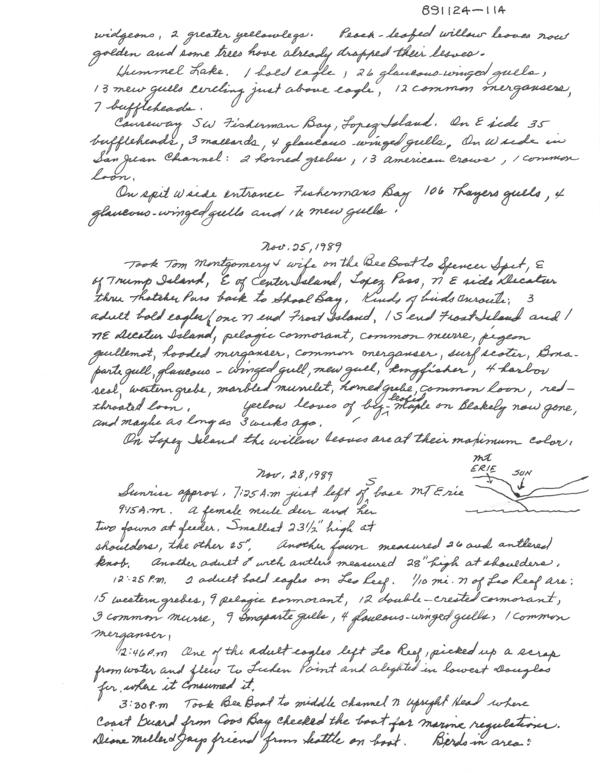 891124-11A
widgeons, 2 greater yellowlegs. Peach-leafed willow leaves now
golden and some trees have already dropped their leaves.
Hummel Lake. 1 bald eagle, 26 glaucous-winged gulls,
13 mew gulls circling just above eagle, 12 common mergansers,
7 buffleheads.
Causeway SW Fisherman Bay, Lopez Island. On E side 35
buffleheads, 3 mallards, 4 glaucous-winged gulls. On W side in
San Juan Channel: 2 horned grebes, 13 american crows, 1 common
loon.
On spit W side entrance Fishermans Bay 106 Thayers gulls, 4
glaucous-winged gulls and 16 mew gulls.
Nov. 25, 1989
Took Tom Montgomery & wife on the Bee Boat to Spencer Spit, E
of Trump Island, E of Center Island, Lopez Pass, N E side Decatur
thru Thatcher Pass back to Shoal Bay. Kinds of birds enroute: 3
adult bald eagles (one N end Frost Island, 1 S end Frost Island and 1
NE Decatur Island, pelagic cormorant, common murre, pigeon
guillemot, hooded merganser, common merganser, surf scoter, Bona-
parte gull, glaucous-winged gull, mew gull, kingfisher, 4 harbor
seal, western grebe, marbled murrelet, horned grebe, common loon, red-
throated loon. Yellow leaves of big-leafed maple on Blakely now gone,
and maybe as long as 3 weeks ago.
On Lopez Island the willow leaves are at their maximum color.
Nov. 28, 1989
MT ERIE SUN
Sunrise approx. 7:25 A.M just left of S base MT Erie
9:15 A.M. A female mule deer and her
two fawns at feeder. Smallest 23 1/2" high at
shoulders, the other 25". Another fawn measured 26 and antlered
knob. Another adult ♂ with antlers measured 28" high at shoulders.
12:25 P.M. 2 adult bald eagles on Leo Reef. 1/10 mi. N of Leo Reef are:
15 western grebes, 9 pelagic cormorant, 12 double-crested cormorant,
3 common murre, 9 Bonaparte gulls, 4 glaucous-winged gulls, 1 common
merganser,
2:46 P.M One of the adult eagles left Leo Reef, picked up a scrap
from water and flew to Lichen Point and alighted in lowest Douglas
fir, where it consumed it.
3:30 P.M Took Bee Boat to middle channel N Upright Head where
Coast Guard from Coos Bay checked the boat for marine regulations.
Diane Miller & Jays friend from Seattle on boat. Birds in area: